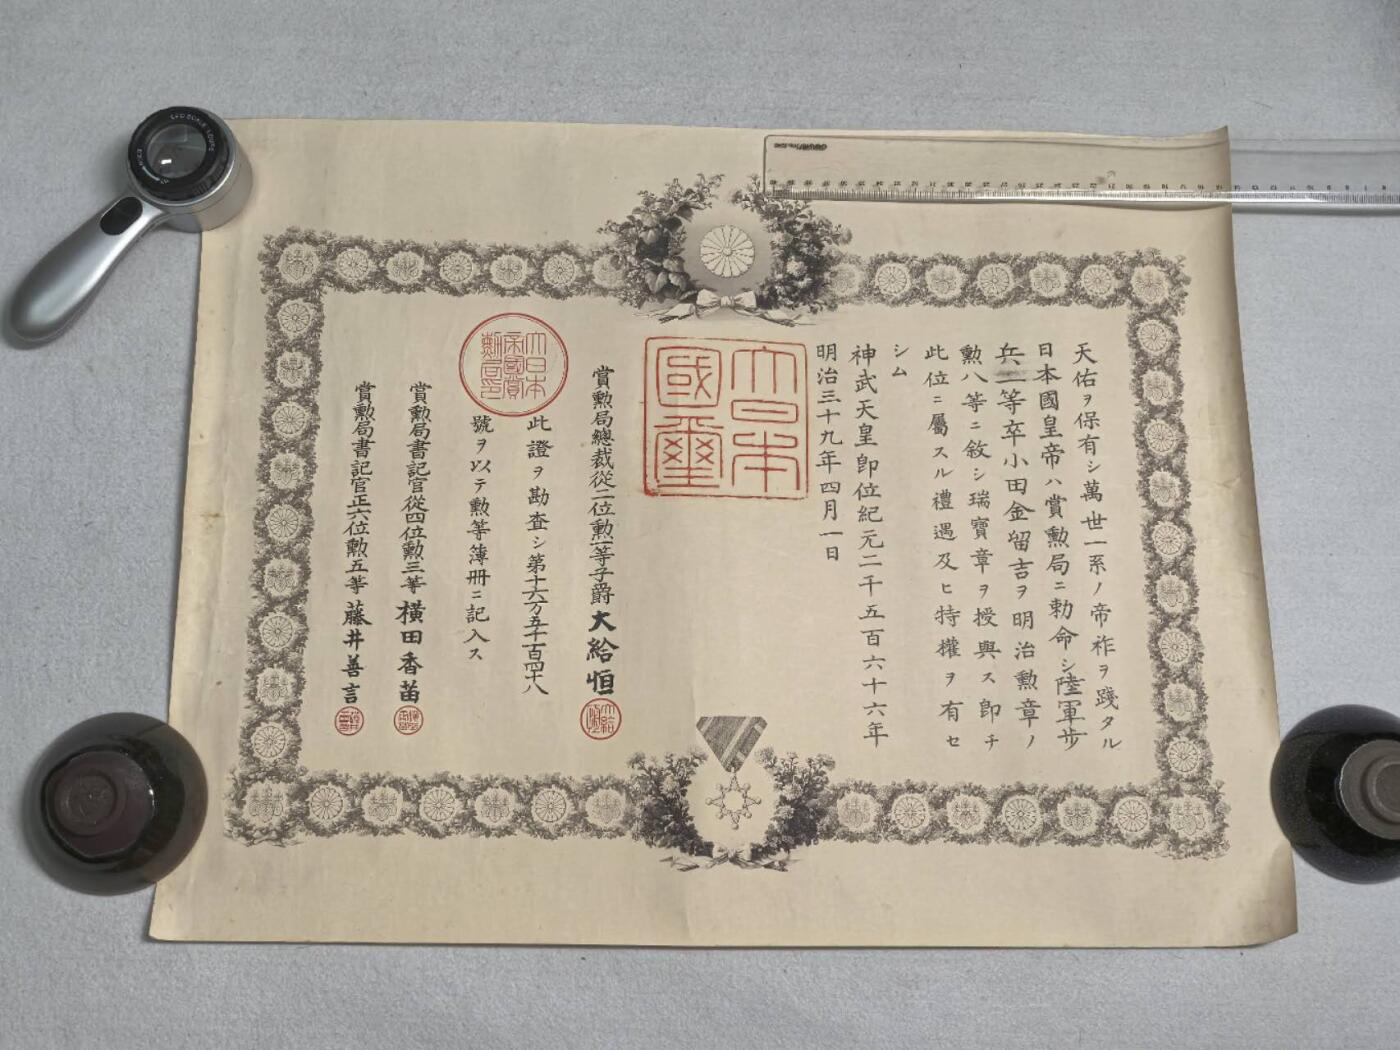 天佑ヲ保有シ萬世一系ノ帝祚ヲ踐タル
日本國皇帝ハ賞勲局ニ勅命シ陸軍歩
兵一等卒小田金留吉ヲ明治勲章ノ
勲八等ニ敘シ瑞寶章ヲ授與ス即チ
此位ニ屬スル禮遇及ヒ特權ヲ有セ
シム
神武天皇即位紀元二千五百六十六年
明治三十九年四月一日
大日本
國璽
賞勲局總裁從二位勲一等子爵大給恒
此證ヲ勘査シ第十六万五千百四十八
號ヲ以テ勲等簿冊ニ記入ス
大日本
帝國賞
勲局印
賞勲局書記官從四位勲三等橫田香苗
賞勲局書記官正六位勲五等藤井善言